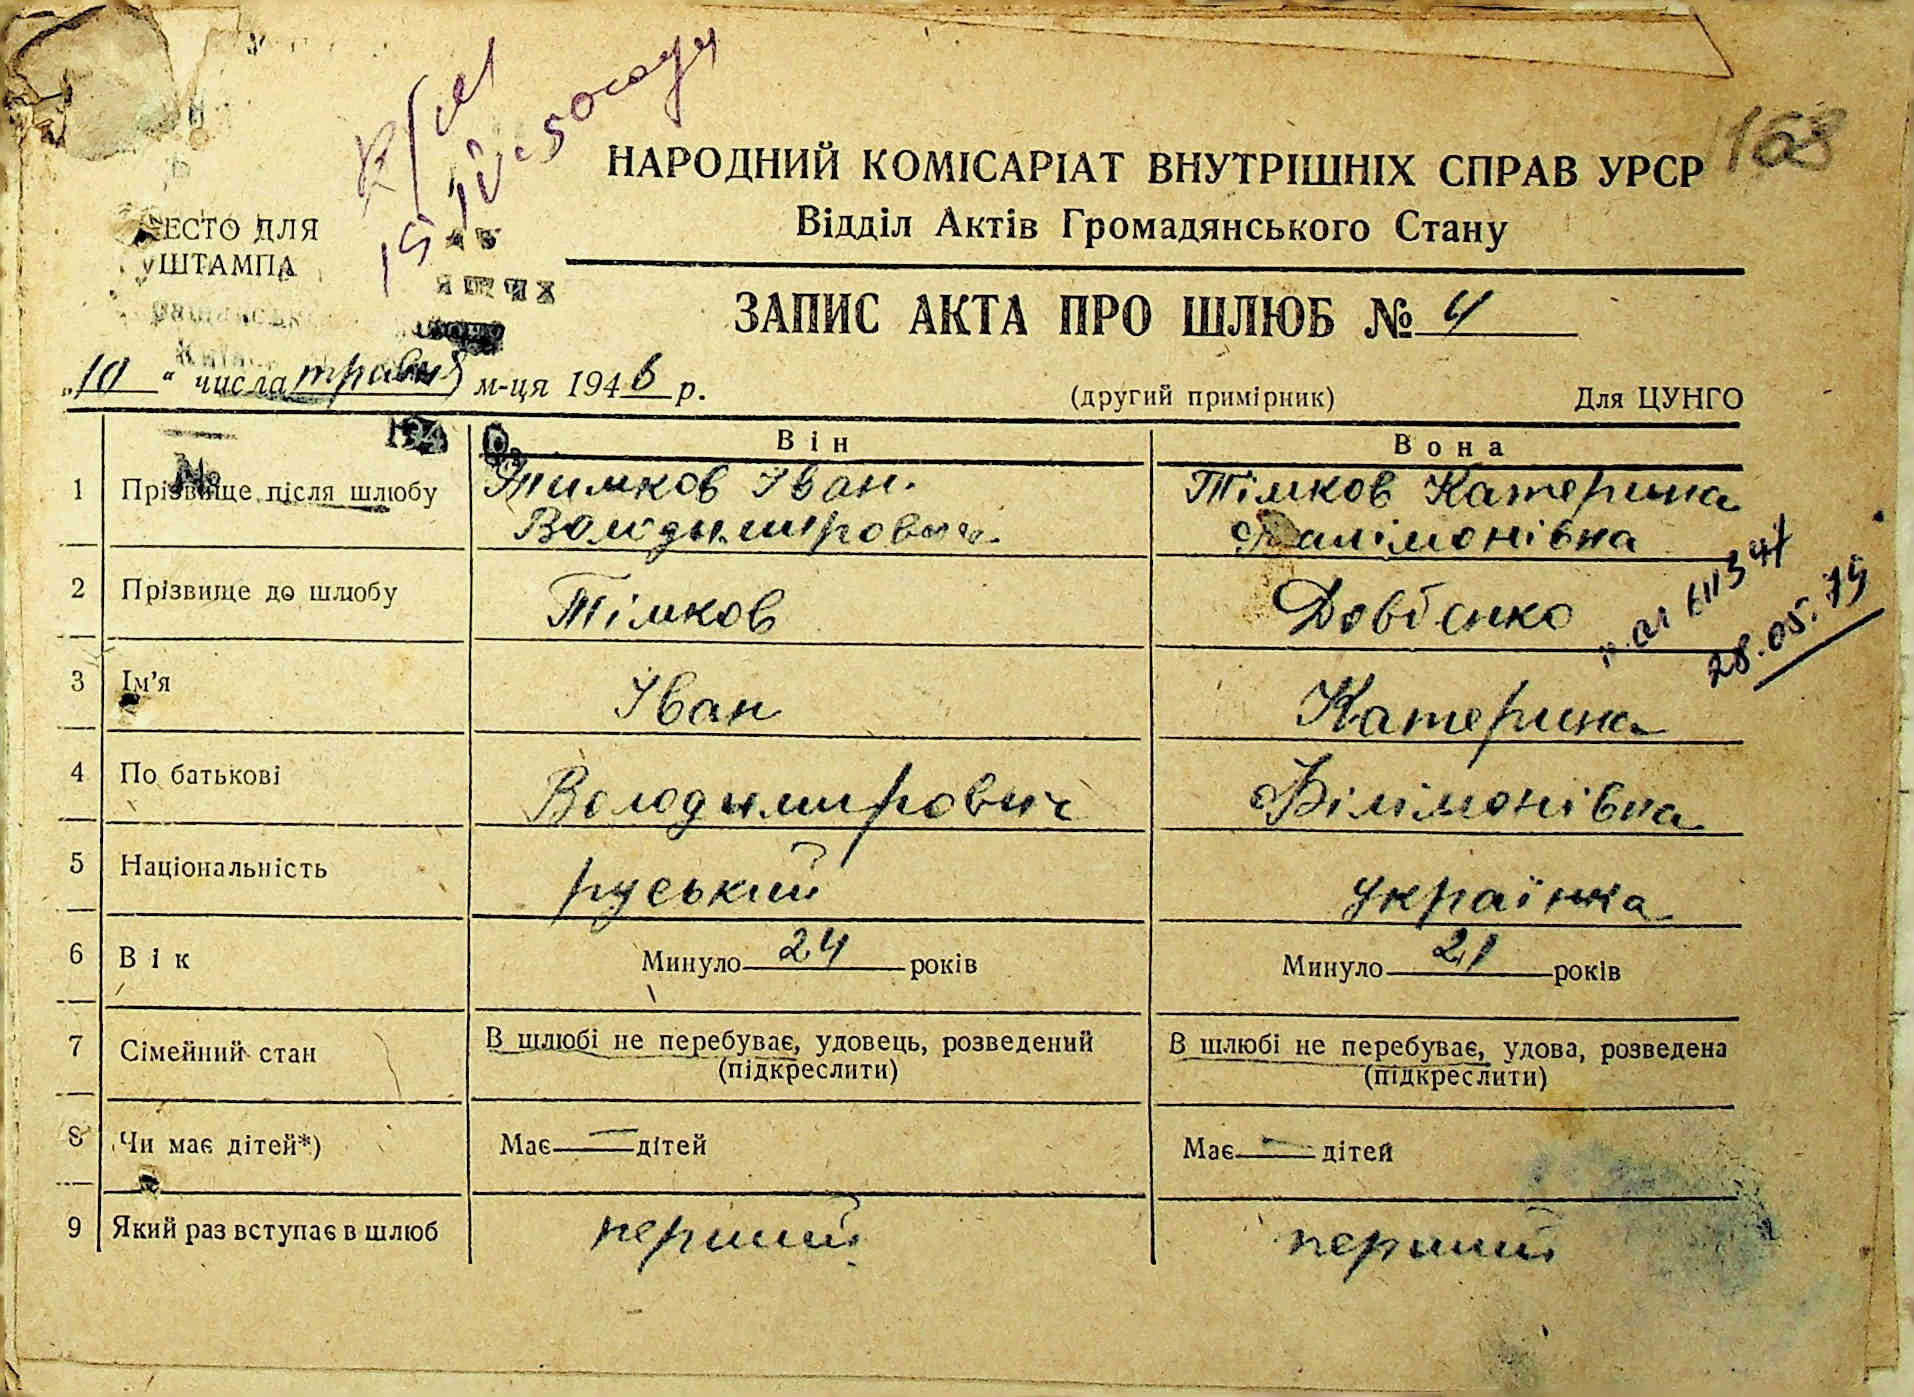 168
15 IV-50
НАРОДНИЙ КОМІСАРІАТ ВНУТРІШНІХ СПРАВ УРСР
Відділ Актів Громадянського Стану
МЕСТО ДЛЯ
ШТАМПА
ЗАПИС АКТА ПРО ШЛЮБ № 4
„10“ числа травня м-ця 1946 р.
(другий примірник) Для ЦУНГО
194
№
Він Вона
1 Прізвище після шлюбу Тимков Іван. Тімков Катерина
Володимирович Філімонівна
2 Прізвище до шлюбу Тімков Довбенко
28.05.75
3 Ім'я Іван Катерина
4 По батькові Володимирович Філімонівна
5 Національність руський українка
6 Вік Минуло 24 років Минуло 21 років
7 Сімейний стан В шлюбі не перебуває, удовець, розведений В шлюбі не перебуває, удова, розведена
(підкреслити) (підкреслити)
8 Чи має дітей*) Має — дітей Має — дітей
9 Який раз вступає в шлюб перший перший